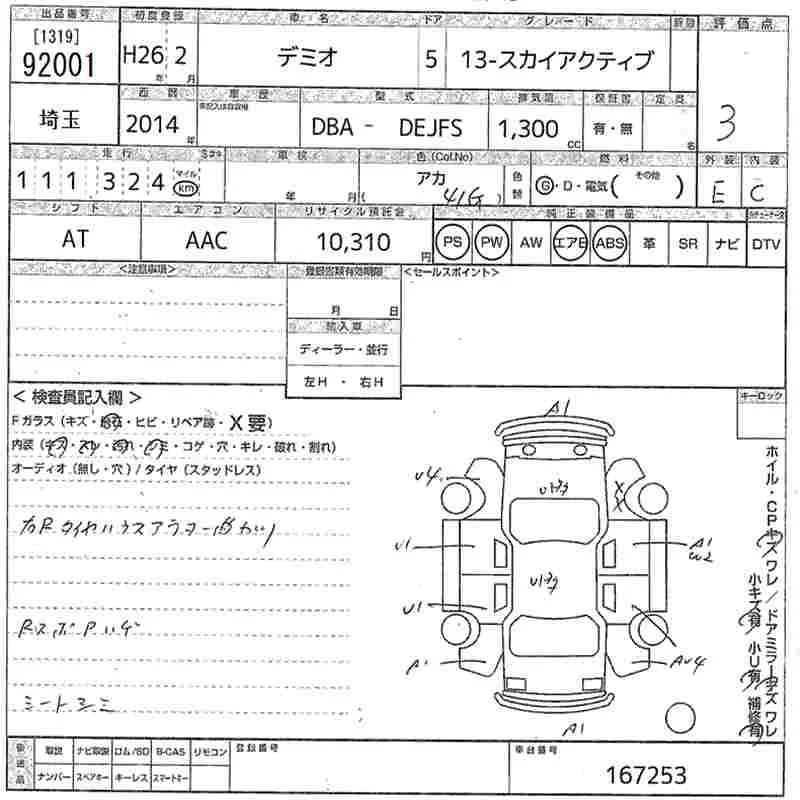 出品番号 初度登録 車名 ドア グレード 評価点
[1319]
92001 H26年 2月 デミオ 5 13-スカイアクティブ
西暦 車歴 型式 排気量 保証書 定員
埼玉 2014年 未記入は自家用 DBA - DEJFS 1,300cc 有・無 名 3
走行 車検 色(Col.No) 燃料 外装 内装
111,324 マイル km 年 月 アカ (41G) 色替 G・D・電気( その他 ) E C
シフト エアコン リサイクル預託金 純正装備品
AT AAC 10,310円 PS PW AW エアB ABS 革 SR ナビ DTV
<注意事項> 登録書類有効期限 <セールスポイント>
月 日
輸入車
ディーラー・並行
左H ・ 右H
<検査員記入欄> キーロック
Fガラス(キズ・飛石・ヒビ・リペア跡・X要)
内装(キズ・スレ・汚れ・シミ・コゲ・穴・キレ・破れ・割れ)
オーディオ(無し・穴)/タイヤ(スタッドレス)
右Fタイヤハウスアウター曲がり
Rスポ Pハゲ
シートシミ
A1
U4
X
X
U1
A1
U2
U1
U1
A1
AU4
A1
ホイル・CPキズワレ/ドアミラーキズワレ
小キズ有 小U有 補修有
後送品 取説 ナビ取説 ロム/SD B-CAS リモコン 登録番号 車台番号
ナンバー スペアキー キーレス スマートキー 167253